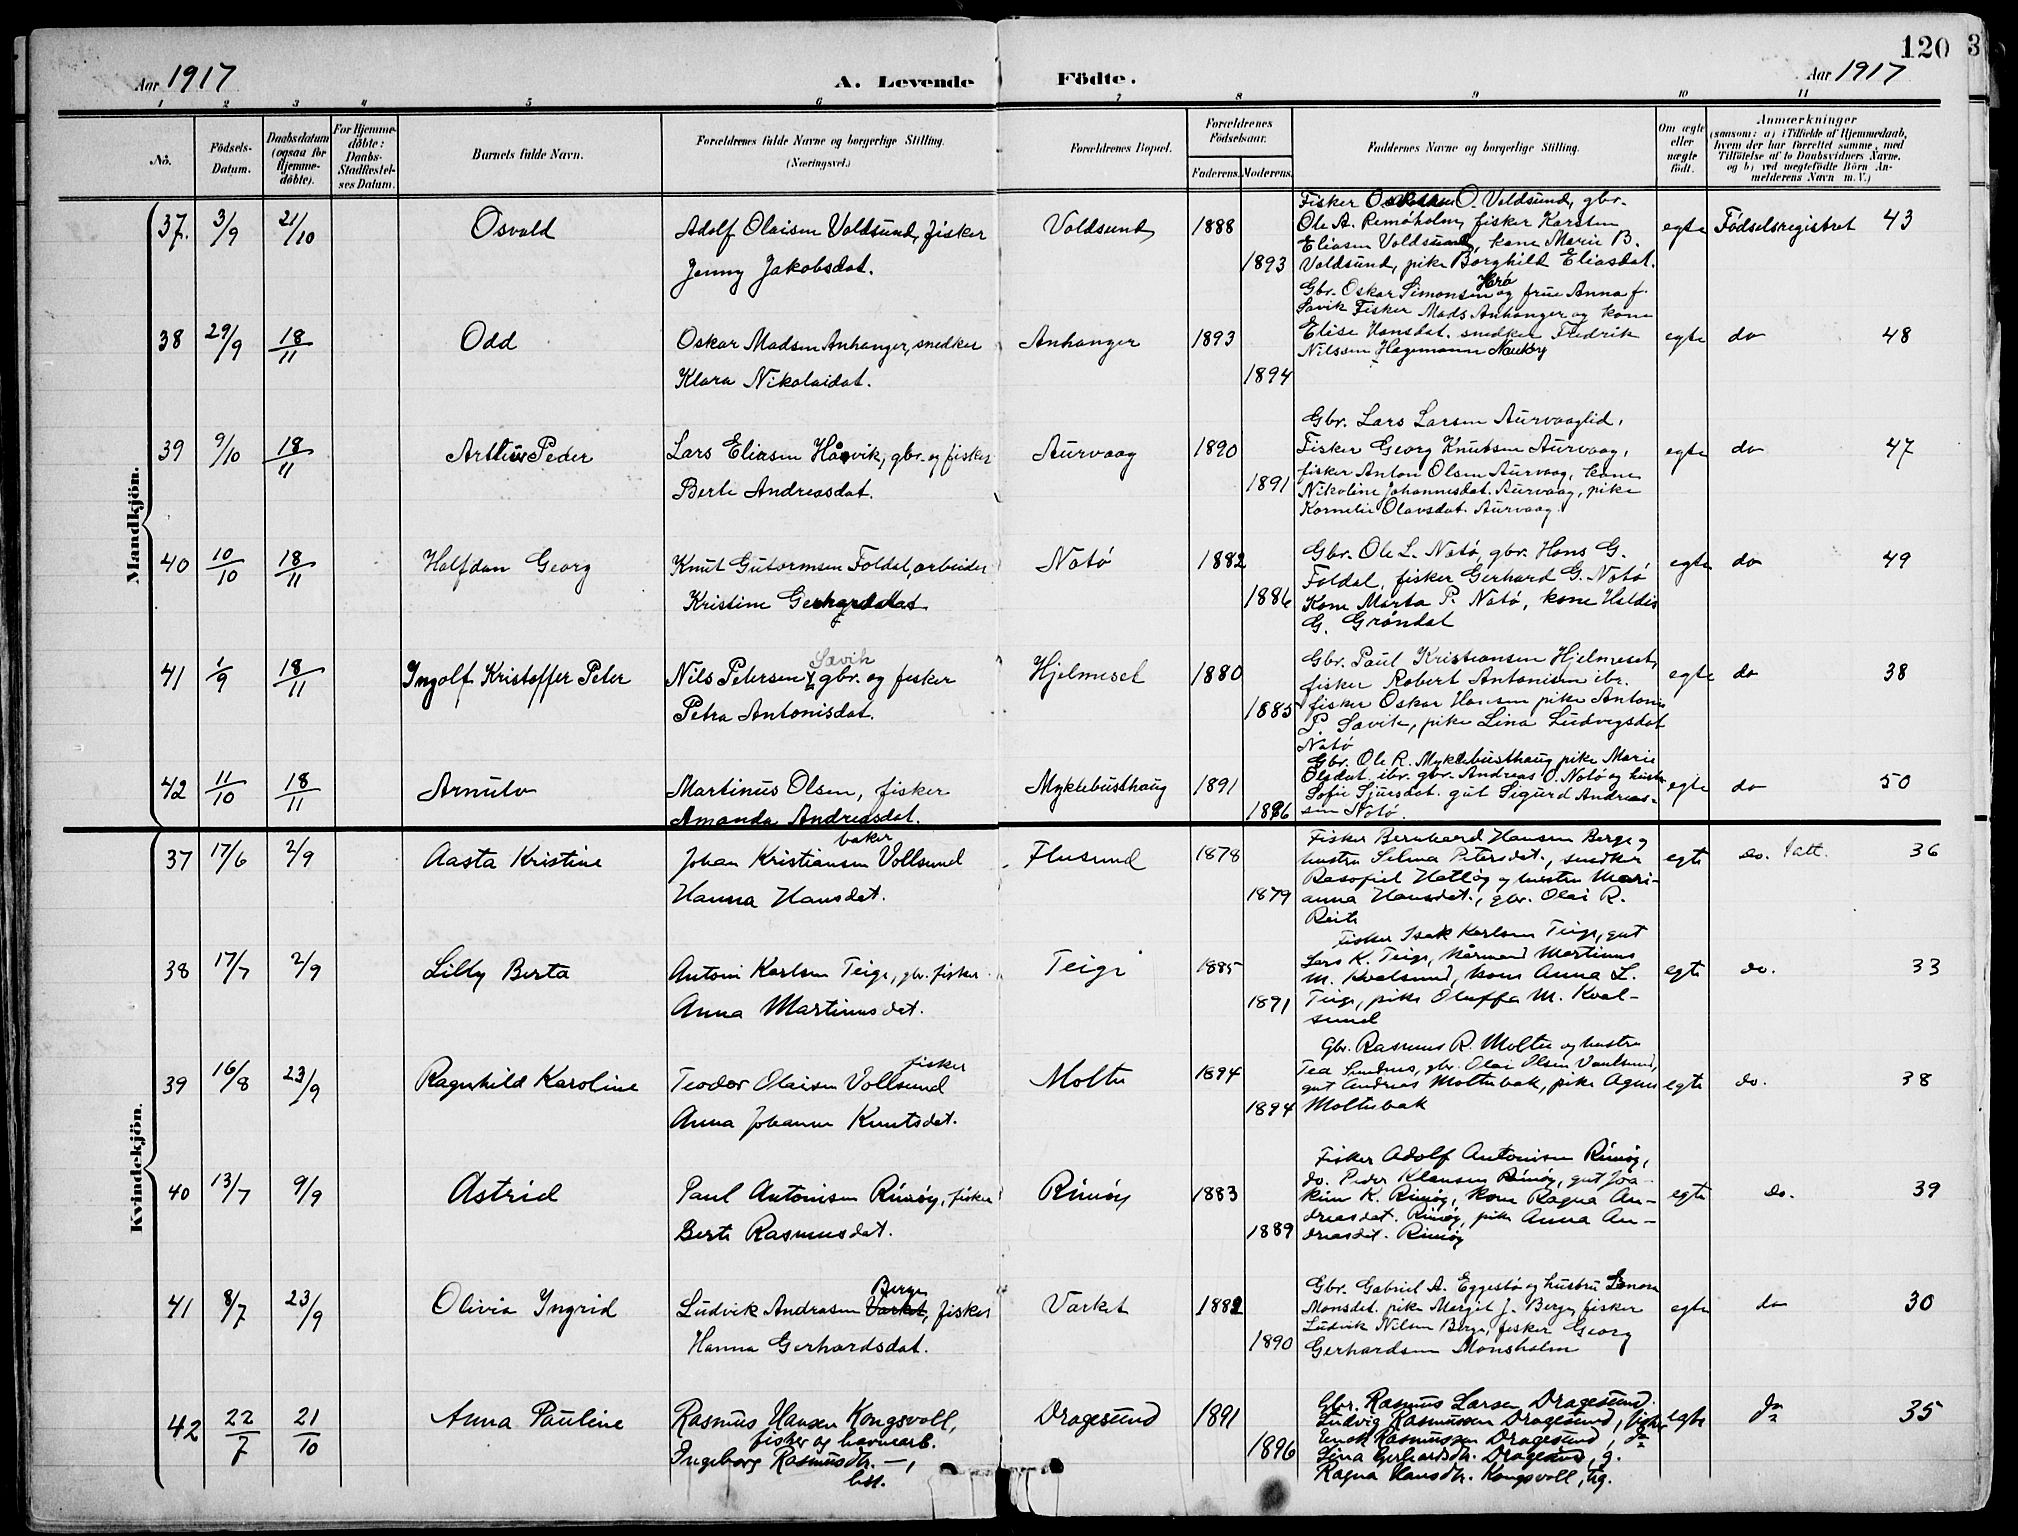 120
Aar 1917 A. Levende Födte. Aar 1917
1 2 3 4 5 6 7 8 9 10 11
No.
Födsels-Datum.
Daabsdatum (ogsaa for Hjemme-döbte).
For Hjemme-döbte: Daabs-Stadfæstel-ses Datum.
Barnets fulde Navn.
Forældrenes fulde Navne og borgerlige Stilling.
(Næringsvei.)
Forældrenes Bopæl.
Forældrenes Födselsaar.
Faderens. Moderens.
Faddernes Navne og borgerlige Stilling.
Om ægte eller uægte födt.
Anmærkninger
(saasom: a) i Tilfælde af Hjemmedaab,
hvem der har forrettet samme, med
Tilföielse af to Daabsvidners Navne,
og b) ved uægtefödte Börn An-
melderens Navn m. V.)
Mandkjön.
37. 3/9 21/10 Osvald Adolf Olaisen Voldsund, fisker Voldsund 1888 egte Födselsregistret 43
Jenny Jakobsdat. 1893
Fisker O. Voldsund, gbr.
Ole A. Remöholm, fisker Karsten
Eliasen Voldsund, kone Marie B.
Voldsund, pike Borghild Eliasdat.
38 29/9 18/11 Odd Oskar Madsen Anhanger, snedker Anhanger 1893 egte do 48
Klara Nikolaidat. 1894
Gbr. Oskar Simonsen Harö og frue Anna f.
Savik Fisker Mads Anhanger og kone
Elise Hansdat. snedker Fredrik
Nilssen Hagemann
39 9/10 18/11 Peder Lars Eliasen Håvik, gbr. og fisker Aurvaag 1890 egte do 47
Berte Andreasdat. 1891
Gbr. Lars Larsen Aurvaaglid,
Fisker Georg Knutsen Aurvaag,
fisker Anton Olsen Aurvaag, kone
Nikoline Johannesdat. Aurvaag, pike
Kornelie Olavsdat. Aurvaag.
40 10/10 18/11 Halfdan Georg Knut Gutormsen Foldal, arbeider Notö 1882 egte do 49
Kristine Gerhardsdat 1886
Gbr. Ole L. Notö, gbr. Hans G.
Foldal, fisker Gerhard G. Notö
Kone Marta P. Notö, kone Haldis
G. Gröndal
41 1/9 18/11 Ingolf Kristoffer Peter Nils Petersen Sævik gbr. og fisker Hjelmeset 1880 egte do 38
Petra Antonisdat. 1885
Gbr. Paul Kristiansen Hjelmeset,
fisker Robert Antonisen ibr.
fisker Oskar Hansen pike Antonie
P. Savik, pike Lina Ludvigsdat
Notö
42 11/10 18/11 Arnulv Martinus Olsen, fisker Myklebusthaug 1891 egte do 50
Amanda Andreasdat. 1886
Gbr. Ole R. Myklebusthaug pike Marie
Olsdat. ibr. gbr. Andreas O. Notö og hustr
Sofie Sjursdat. gut Sigurd Andreas-
sen Notö.
Kvindekjön.
37 17/6 2/9 Aasta Kristine Johan Kristiansen Vollsund baker Flusund 1878 egte do. 36
Hanna Hansdat. 1879
Fisker Bernhard Hansen Berge og
hustru Selma Petersdat., snedker
Hatlöy og hustru Mari-
anna Hansdat., gbr. Olai R.
Reite
38 17/7 2/9 Lilly Berta Antoni Karlsen Teige, gbr. fisker Teige 1885 egte do. 33
Anna Martinusdat. 1891
Fisker Isak Karlsen Teige, gut
Lars K. Teige, Martinus
M. Kvalsund, kone Anna L.
Teige, pike Oluffa M. Kval-
sund
39 16/8 23/9 Ragnhild Karoline Teodor Olaisen Vollsund fisker Moltu 1894 egte do. 38
Anna Johanne Knutsdat. 1894
Gbr. Rasmus R. Moltu og hustru
Tea, gbr. Olai Olsen,
gut Andreas Moltubak, pike Agnes
Moltubak
40 13/7 9/9 Astrid Paul Antonisen Rimöy, fisker Rimöy 1883 egte do. 39
Berte Rasmusdat. 1889
Fisker Adolf Antonisen Rimöy,
do. Peder Klausen Rimöy, gut Joa-
kim K. Rimöy, kone Ragna An-
dreasdat. Rimöy, pike Anna An-
dreasdat. Rimöy
41 8/7 23/9 Olivia Ingrid Ludvik Andreasen Varket Berge, fisker Varket 1882 egte do 30
Hanna Gerhardsdat. 1890
Gbr. Gabriel A. Eggesbö og hustru Lenora
Monsdat. pike Margit J. Berge, fisker
Ludvik Nilsen Berge, fisker Georg
Gerhardsen Monsholm
42 22/7 21/10 Anna Pauline Rasmus Hansen Kongsvoll, Dragesund 1891 egte do 35
fisker og havnearb.
Ingeborg Rasmusdtr. —, 1896
Gbr. Rasmus Larsen Dragesund.
Ludvig Rasmussen Dragesund, fisker
Enok Rasmussen Dragesund, do
Lina Gerhardsdtr. Dragesund, g.
Ragna Hansdtr. Kongsvoll, ug.